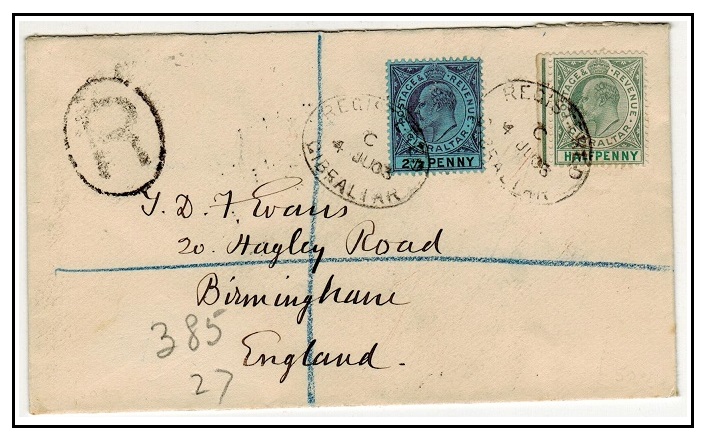 R
POSTAGE & REVENUE
GIBRALTAR
2½ PENNY
POSTAGE & REVENUE
GIBRALTAR
HALFPENNY
REGISTERED
C
4 JU 03
GIBRALTAR
REGISTERED
C
4 JU 03
GIBRALTAR
J. D. F. Evans
20. Hagley Road
Birmingham
England.
385
27